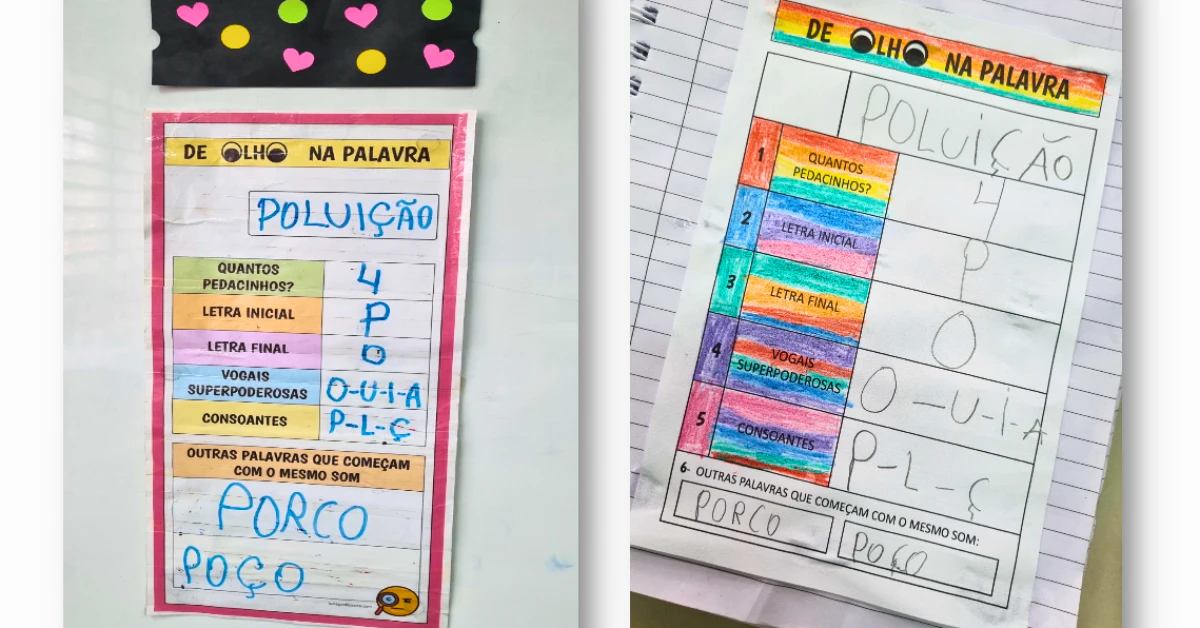 DE OLHO NA PALAVRA
POLUIÇÃO
QUANTOS PEDACINHOS? 4
LETRA INICIAL P
LETRA FINAL O
VOGAIS SUPERPODEROSAS O-U-I-A
CONSOANTES P-L-Ç
OUTRAS PALAVRAS QUE COMEÇAM
COM O MESMO SOM
PORCO
POÇO
DE OLHO NA PALAVRA
POLUIÇÃO
1 QUANTOS PEDACINHOS? 4
2 LETRA INICIAL P
3 LETRA FINAL O
4 VOGAIS SUPERPODEROSAS O-U-i-A
5 CONSOANTES P-L-Ç
6- OUTRAS PALAVRAS QUE COMEÇAM COM O MESMO SOM:
PORCO POÇO